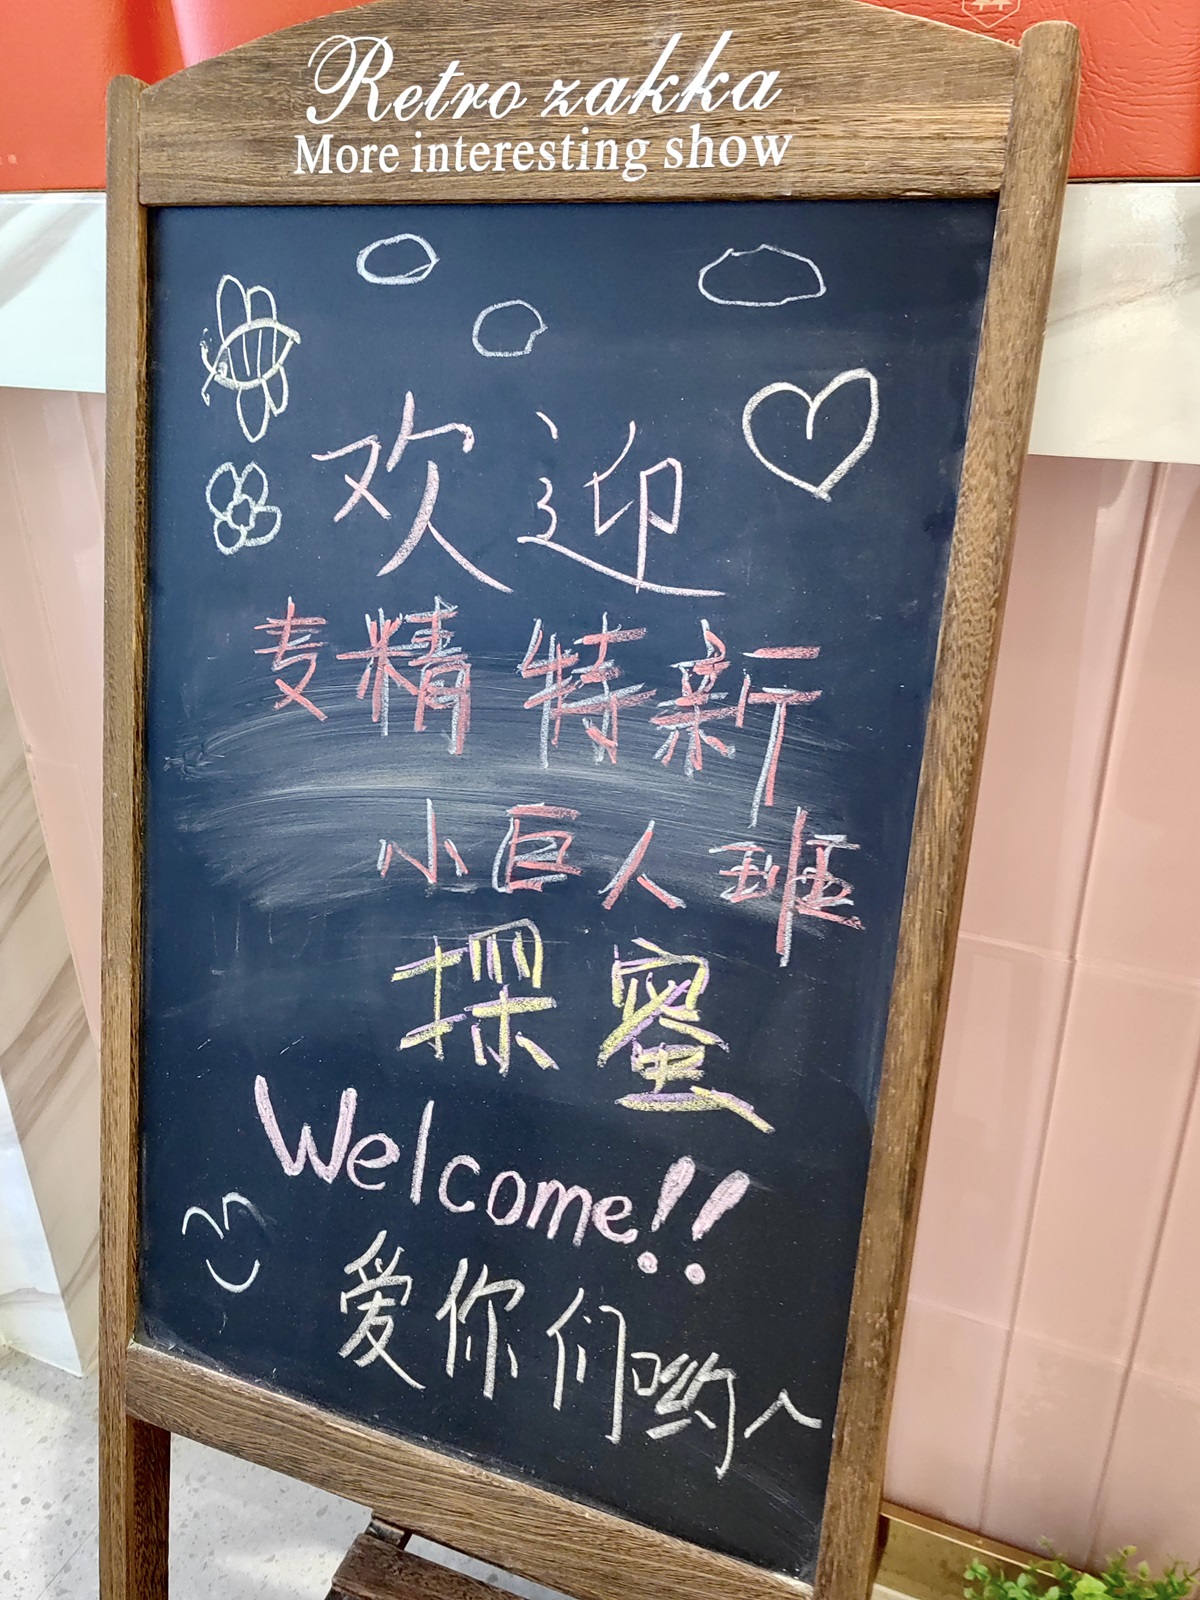 Retro zakka
More interesting show
欢迎
专精特新
小巨人班
探蜜
Welcome!!
爱你们哟~